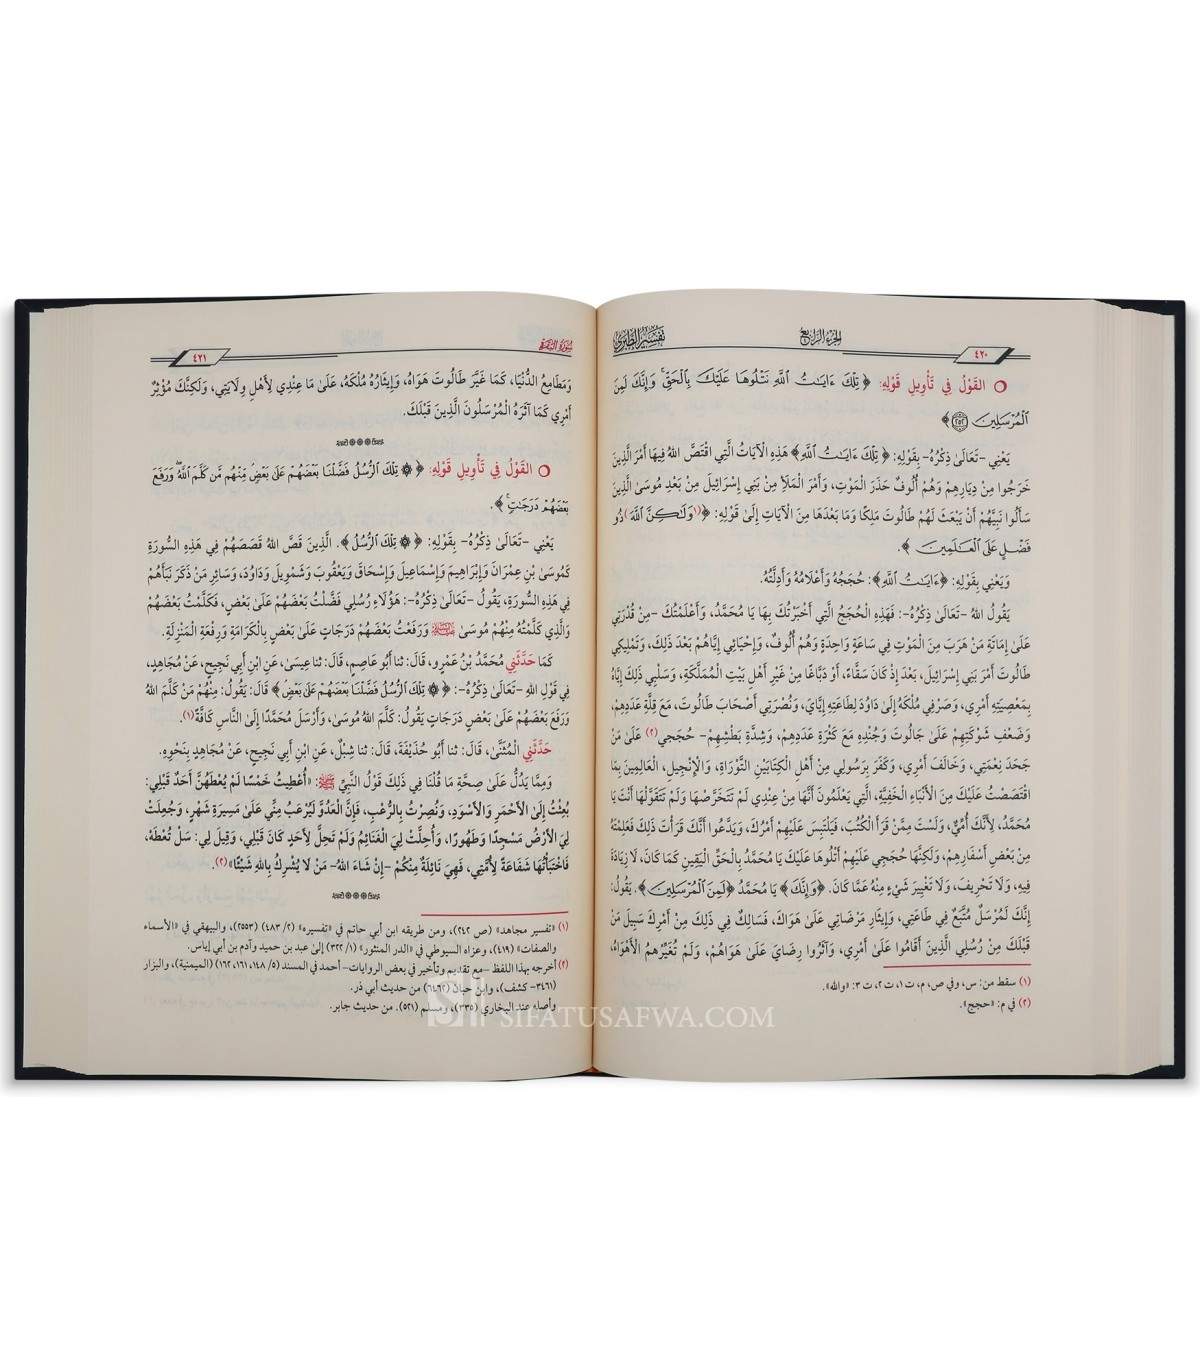 تفسير الطبري
الجزء الرابع
٤٢٠
○ القَوْلُ فِي تَأْوِيلِ قَوْلِهِ: ﴿تِلْكَ ءَايَـٰتُ ٱللَّهِ نَتْلُوهَا عَلَيْكَ بِٱلْحَقِّ وَإِنَّكَ لَمِنَ
ٱلْمُرْسَلِينَ ۝٢٥٢﴾
يَعْنِي -تَعَالَىٰ ذِكْرُهُ- بِقَوْلِهِ: ﴿تِلْكَ ءَايَـٰتُ ٱللَّهِ﴾ هَذِهِ الْآيَاتُ الَّتِي اقْتَصَّ اللهُ فِيهَا أَمْرَ الَّذِينَ
خَرَجُوا مِنْ دِيَارِهِمْ وَهُمْ أُلُوفٌ حَذَرَ الْمَوْتِ، وَأَمْرَ الْمَلَأِ مِنْ بَنِي إِسْرَائِيلَ مِنْ بَعْدِ مُوسَىٰ الَّذِينَ
سَأَلُوا نَبِيَّهُمْ أَنْ يَبْعَثَ لَهُمْ طَالُوتَ مَلِكًا وَمَا بَعْدَهَا مِنَ الْآيَاتِ إِلَىٰ قَوْلِهِ: ﴿(١)وَلَـٰكِنَّ ٱللَّهَ) ذُو
فَضْلٍ عَلَى ٱلْعَـٰلَمِينَ﴾.
وَيَعْنِي بِقَوْلِهِ: ﴿ءَايَـٰتُ ٱللَّهِ﴾: حُجَجُهُ وَأَعْلَامُهُ وَأَدِلَّتُهُ.
يَقُولُ اللهُ -تَعَالَىٰ ذِكْرُهُ-: فَهَذِهِ الْحُجَجُ الَّتِي أَخْبَرْتُكَ بِهَا يَا مُحَمَّدُ، وَأَعْلَمْتُكَ -مِنْ قُدْرَتِي
عَلَىٰ إِمَاتَةِ مَنْ هَرَبَ مِنَ الْمَوْتِ فِي سَاعَةٍ وَاحِدَةٍ وَهُمْ أُلُوفٌ، وَإِحْيَائِي إِيَّاهُمْ بَعْدَ ذَلِكَ، وَتَمْلِيكِي
طَالُوتَ أَمْرَ بَنِي إِسْرَائِيلَ، بَعْدَ إِذْ كَانَ سَقَّاءً، أَوْ دَبَّاغًا مِنْ غَيْرِ أَهْلِ بَيْتِ الْمَمْلَكَةِ، وَسَلْبِي ذَلِكَ إِيَّاهُ
بِمَعْصِيَتِهِ أَمْرِي، وَصَرْفِي مُلْكَهُ إِلَىٰ دَاوُدَ لِطَاعَتِهِ إِيَّايَ، وَنُصْرَتِي أَصْحَابَ طَالُوتَ، مَعَ قِلَّةِ عَدَدِهِمْ،
وَضَعْفِ شَوْكَتِهِمْ عَلَىٰ جَالُوتَ وَجُنْدِهِ مَعَ كَثْرَةِ عَدَدِهِمْ، وَشِدَّةِ بَطْشِهِمْ- حُجَجِي(٢) عَلَىٰ مَنْ
جَحَدَ نِعْمَتِي، وَخَالَفَ أَمْرِي، وَكَفَرَ بِرَسُولِي مِنْ أَهْلِ الْكِتَابَيْنِ التَّوْرَاةِ، وَالْإِنْجِيلِ، الْعَالِمِينَ بِمَا
اقْتَصَصْتُ عَلَيْكَ مِنَ الْأَنْبَاءِ الْخَفِيَّةِ، الَّتِي يَعْلَمُونَ أَنَّهَا مِنْ عِنْدِي لَمْ تَتَخَرَّصْهَا وَلَمْ تَتَقَوَّلْهَا أَنْتَ يَا
مُحَمَّدُ، لِأَنَّكَ أُمِّيٌّ، وَلَسْتَ مِمَّنْ قَرَأَ الْكُتُبَ، فَيَلْتَبِسَ عَلَيْهِمْ أَمْرُكَ، وَيَدَّعُوا أَنَّكَ قَرَأْتَ ذَلِكَ فَعَلِمْتَهُ
مِنْ بَعْضِ أَسْفَارِهِمْ، وَلَكِنَّهَا حُجَجِي عَلَيْهِمْ أَتْلُوهَا عَلَيْكَ يَا مُحَمَّدُ بِالْحَقِّ الْيَقِينِ كَمَا كَانَ، لَا زِيَادَةَ
فِيهِ، وَلَا تَحْرِيفَ، وَلَا تَغْيِيرَ شَيْءٍ مِنْهُ عَمَّا كَانَ. ﴿وَإِنَّكَ﴾ يَا مُحَمَّدُ ﴿لَمِنَ ٱلْمُرْسَلِينَ﴾. يَقُولُ:
إِنَّكَ لَمُرْسَلٌ مُتَّبَعٌ فِي طَاعَتِي، وَإِيثَارِ مَرْضَاتِي عَلَىٰ هَوَاكَ، فَسَالِكٌ فِي ذَلِكَ مِنْ أَمْرِكَ سَبِيلَ مَنْ
قَبْلَكَ مِنْ رُسُلِي الَّذِينَ أَقَامُوا عَلَىٰ أَمْرِي، وَآثَرُوا رِضَايَ عَلَىٰ هَوَاهُمْ، وَلَمْ تُغَيِّرْهُمُ الْأَهْوَاءُ،
(١) سقط من: س، وفي ص، م، ت ١، ت ٢، ت ٣: «والله».
(٢) في م: «حجج».
سورة البقرة
٤٢١
وَمَطَامِعُ الدُّنْيَا، كَمَا غَيَّرَ طَالُوتَ هَوَاهُ، وَإِيثَارُهُ مُلْكَهُ، عَلَىٰ مَا عِنْدِي لِأَهْلِ وِلَايَتِي، وَلَكِنَّكَ مُؤْثِرٌ
أَمْرِي كَمَا آثَرَهُ الْمُرْسَلُونَ الَّذِينَ قَبْلَكَ.
○ القَوْلُ فِي تَأْوِيلِ قَوْلِهِ: ﴿۞ تِلْكَ ٱلرُّسُلُ فَضَّلْنَا بَعْضَهُمْ عَلَىٰ بَعْضٍ مِّنْهُم مَّن كَلَّمَ ٱللَّهُ وَرَفَعَ
بَعْضَهُمْ دَرَجَـٰتٍ﴾.
يَعْنِي -تَعَالَىٰ ذِكْرُهُ- بِقَوْلِهِ: ﴿۞ تِلْكَ ٱلرُّسُلُ﴾. الَّذِينَ قَصَّ اللهُ قَصَصَهُمْ فِي هَذِهِ السُّورَةِ
كَمُوسَىٰ بْنِ عِمْرَانَ وَإِبْرَاهِيمَ وَإِسْمَاعِيلَ وَإِسْحَاقَ وَيَعْقُوبَ وَشَمْوِيلَ وَدَاوُدَ، وَسَائِرِ مَنْ ذَكَرَ نَبَأَهُمْ
فِي هَذِهِ السُّورَةِ، يَقُولُ -تَعَالَىٰ ذِكْرُهُ-: هَؤُلَاءِ رُسُلِي فَضَّلْتُ بَعْضَهُمْ عَلَىٰ بَعْضٍ، فَكَلَّمْتُ بَعْضَهُمْ
وَالَّذِي كَلَّمْتُهُ مِنْهُمْ مُوسَىٰ ﷺ وَرَفَعْتُ بَعْضَهُمْ دَرَجَاتٍ عَلَىٰ بَعْضٍ بِالْكَرَامَةِ وَرِفْعَةِ الْمَنْزِلَةِ.
كَمَا حَدَّثَنِي مُحَمَّدُ بْنُ عَمْرٍو، قَالَ: ثنا أَبُو عَاصِمٍ، قَالَ: ثنا عِيسَىٰ، عَنِ ابْنِ أَبِي نَجِيحٍ، عَنْ مُجَاهِدٍ،
فِي قَوْلِ اللهِ -تَعَالَىٰ ذِكْرُهُ-: ﴿۞ تِلْكَ ٱلرُّسُلُ فَضَّلْنَا بَعْضَهُمْ عَلَىٰ بَعْضٍ﴾ قَالَ: يَقُولُ: مِنْهُمْ مَنْ كَلَّمَ اللهُ
وَرَفَعَ بَعْضَهُمْ عَلَىٰ بَعْضٍ دَرَجَاتٍ يَقُولُ: كَلَّمَ اللهُ مُوسَىٰ، وَأَرْسَلَ مُحَمَّدًا إِلَىٰ النَّاسِ كَافَّةً(١).
حَدَّثَنِي الْمُثَنَّىٰ، قَالَ: ثنا أَبُو حُذَيْفَةَ، قَالَ: ثنا شِبْلٌ، عَنِ ابْنِ أَبِي نَجِيحٍ، عَنْ مُجَاهِدٍ بِنَحْوِهِ.
وَمِمَّا يَدُلُّ عَلَىٰ صِحَّةِ مَا قُلْنَا فِي ذَلِكَ قَوْلُ النَّبِيِّ ﷺ: «أُعْطِيتُ خَمْسًا لَمْ يُعْطَهُنَّ أَحَدٌ قَبْلِي:
بُعِثْتُ إِلَىٰ الْأَحْمَرِ وَالْأَسْوَدِ، وَنُصِرْتُ بِالرُّعْبِ، فَإِنَّ الْعَدُوَّ لَيُرْعَبُ مِنِّي عَلَىٰ مَسِيرَةِ شَهْرٍ، وَجُعِلَتْ
لِيَ الْأَرْضُ مَسْجِدًا وَطَهُورًا، وَأُحِلَّتْ لِيَ الْغَنَائِمُ وَلَمْ تَحِلَّ لِأَحَدٍ كَانَ قَبْلِي، وَقِيلَ لِي: سَلْ تُعْطَهْ،
فَاخْتَبَأْتُهَا شَفَاعَةً لِأُمَّتِي، فَهِيَ نَائِلَةٌ مِنْكُمْ -إِنْ شَاءَ اللهُ- مَنْ لَا يُشْرِكُ بِاللهِ شَيْئًا»(٢).
(١) «تفسير مجاهد» (ص ٢٤٢)، ومن طريقه ابن أبي حاتم في «تفسيره» (٢/ ٤٨٣) (٢٥٥٣)، والبيهقي في «الأسماء
والصفات» (٤١٩)، وعزاه السيوطي في «الدر المنثور» (١/ ٣٢٢) إلى عبد بن حميد وآدم بن أبي إياس.
(٢) أخرجه بهذا اللفظ -مع تقديم وتأخير في بعض الروايات- أحمد في المسند (٥/ ١٤٨، ١٦١، ١٦٢) (الميمنية)، والبزار
(٣٤٦١- كشف)، وابن حبان (٦٤٦٢) من حديث أبي ذر.
وأصله عند البخاري (٣٣٥)، ومسلم (٥٢١). من حديث جابر.
SIFATUSAFWA.COM